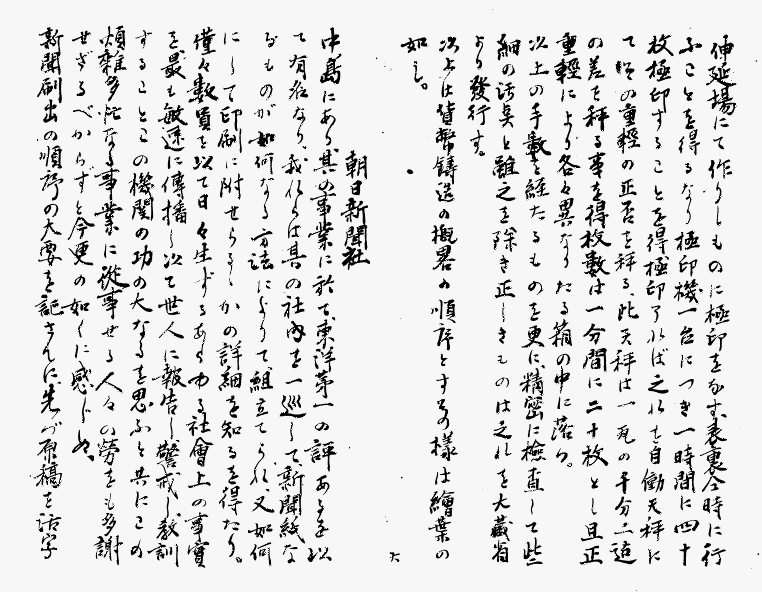 伸延場にて作りしものに極印をなす、表裏合時に行
ふことを得るなり極印機一台につき一時間に四十
枚極印することを得極印了れば之れを自働天秤に
て其の重軽の正否を秤る、此天秤は一瓦の千分二迠
の差を秤る事を得枚数は一分間に二十枚とし且正
重軽により各々異なりたる箱の中に落つ。
以上の手数を経たるものを更に精密に検査して些
細の汚臭と雖之を除き正しきものは之れを大蔵省
より發行す。
次上は貨幣鋳造の概畧の順序とす其の様は繪葉の
如し。
朝日新聞社
中島にあり其の事業に於て東洋第一の評あるを以
て有名なり、我れらは其の社内を一巡して新聞紙な
るものが如何なる方法によりて組立てられ、又如何
にして印刷に附せらるゝかの詳細を知るを得たり。
僅々数頁を以て日々生ずるあらゆる社會上の事實
を最も敏速に傳播し以て世人に報告し警戒し教訓
することこの機関の功の大なるを思ふと共にこの
煩雜多忙なる事業に從事せる人々の勞をも多謝
せざるべからずと今更の如くに感じぬ、
新聞刷出の順序の大要を記さんに先づ原稿を活字
六